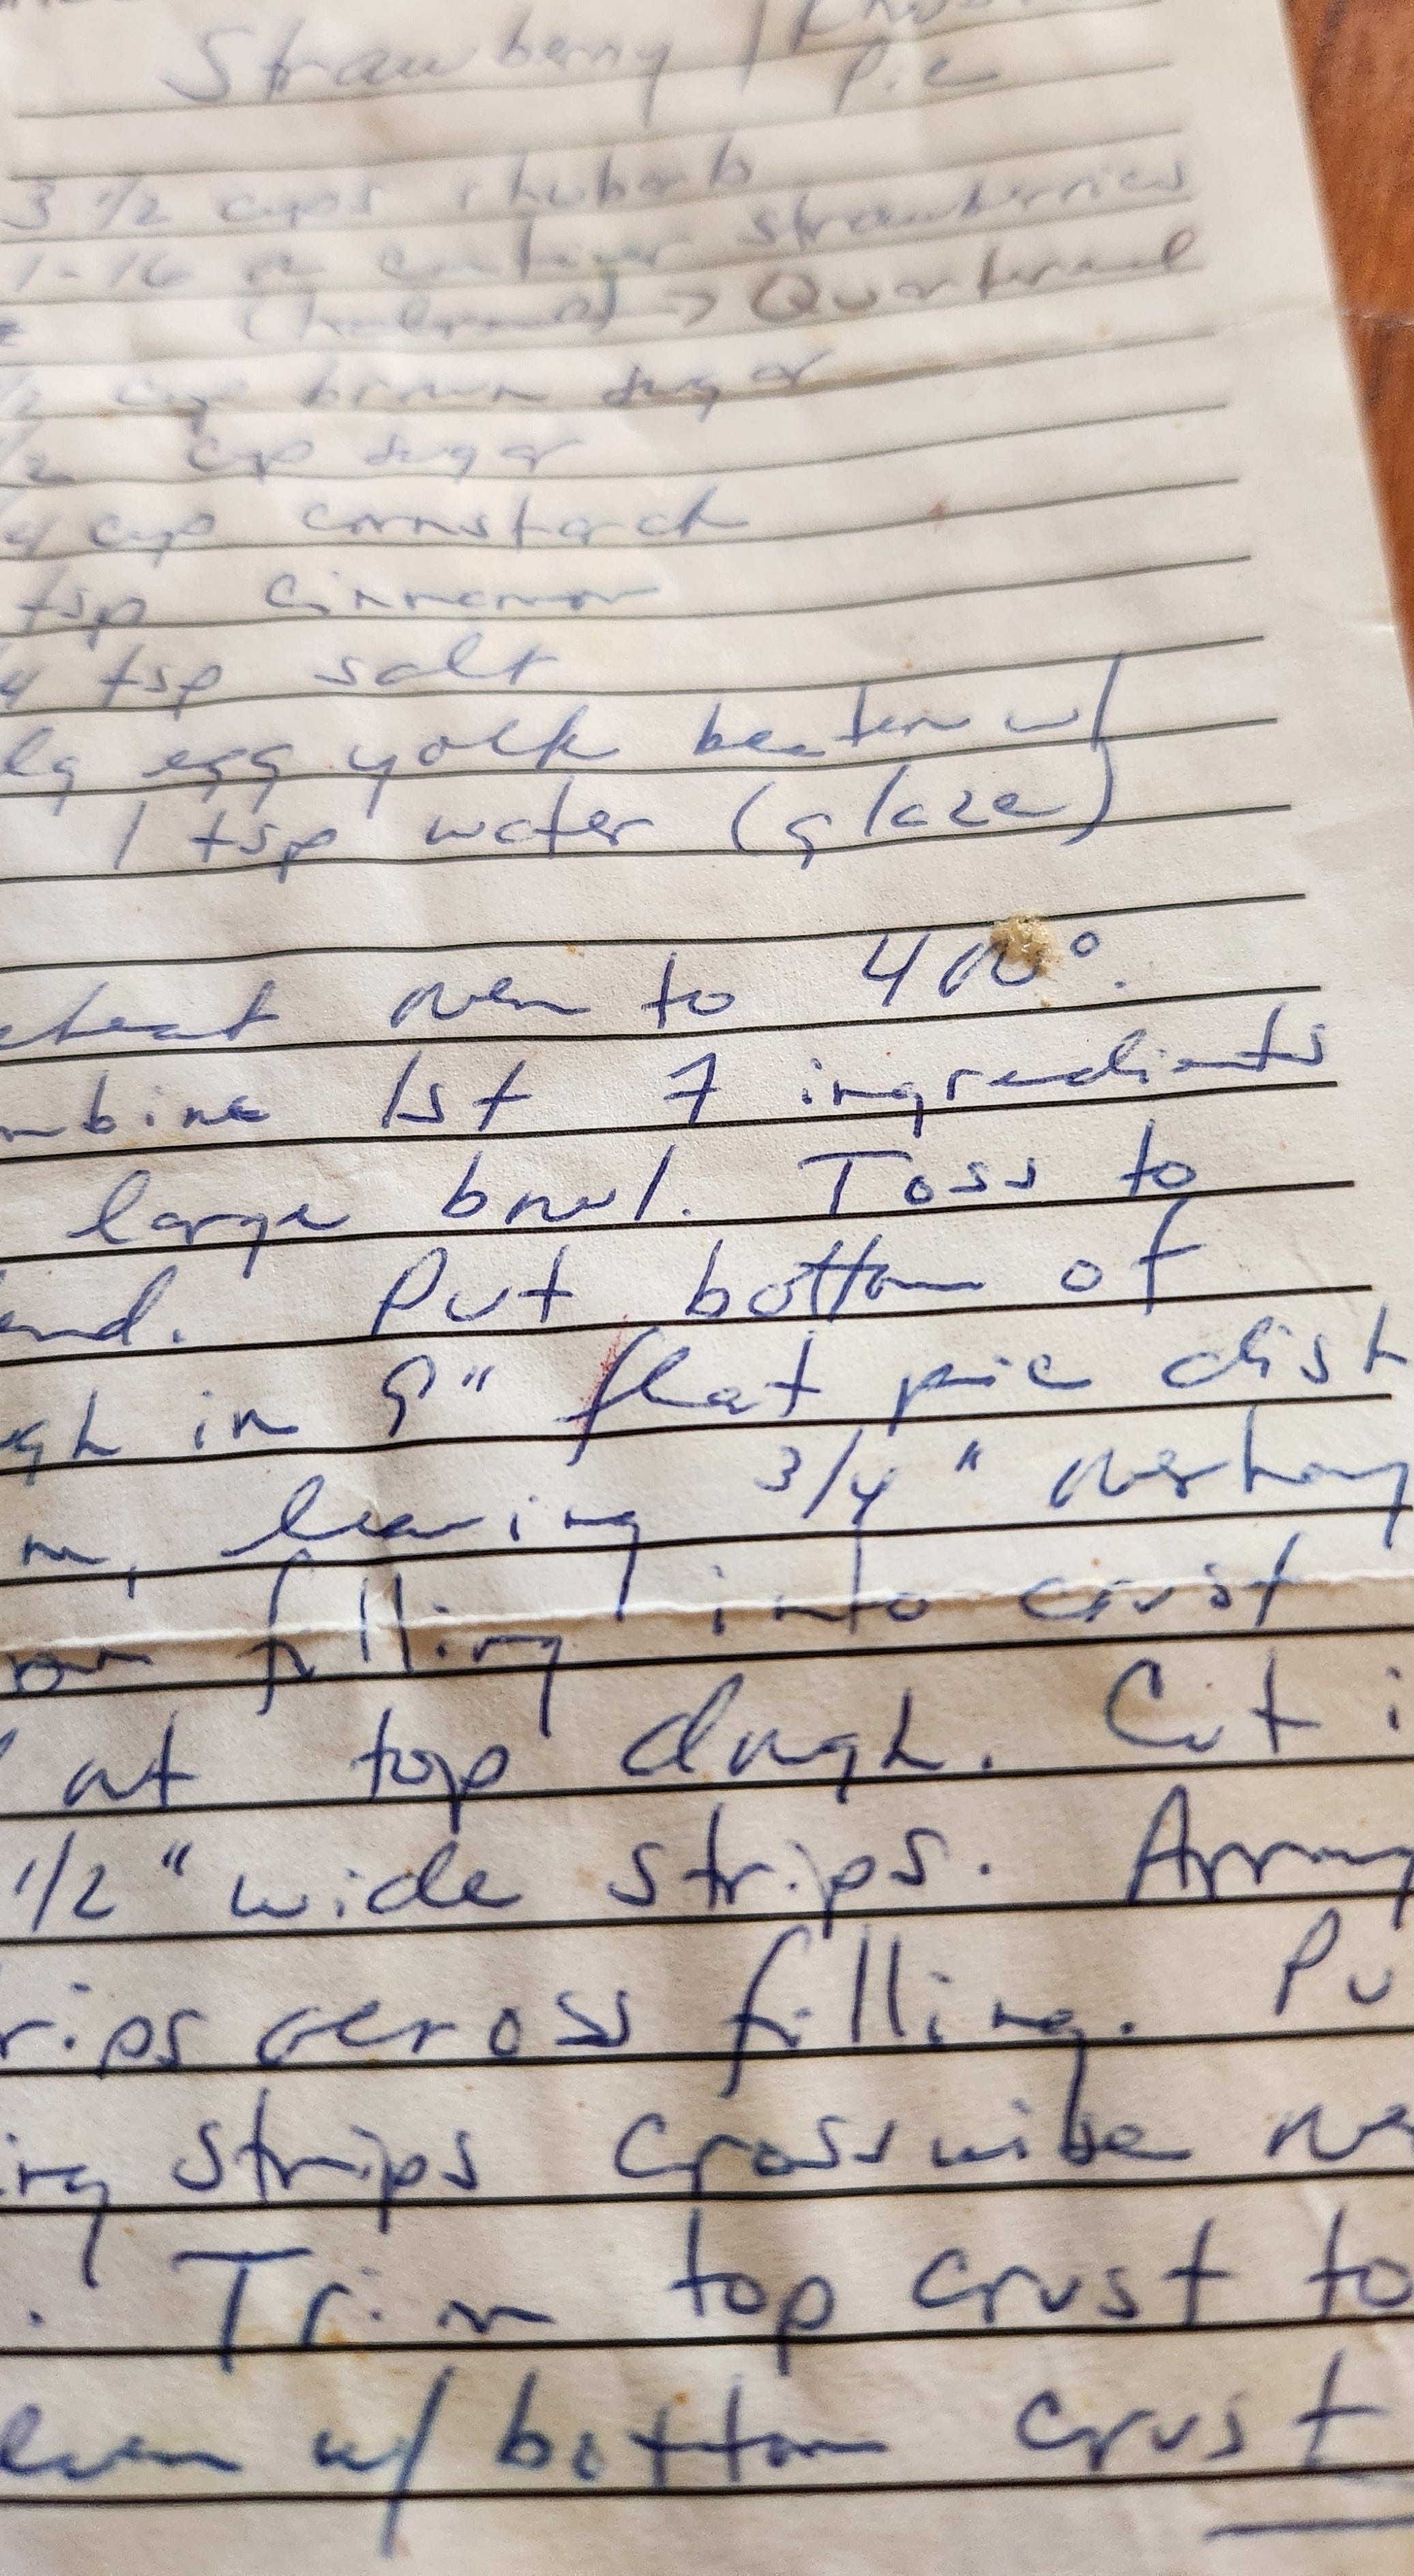 Strawberry /
Pie
3 1/2 cups rhubarb
1-16 oz container strawberries
(halved) → Quartered
/2 cup brown sugar
/2 cup sugar
/4 cup cornstarch
tsp cinnamon
/4 tsp salt
lg egg yolk beaten w/
1 tsp water (glaze)
eheat oven to 400°.
mbine 1st 7 ingredients
large bowl. Toss to
end. Put bottom of
ugh in 9" flat pie dish
m, leaving 3/4" overhang
oon filling into crust
out top dough. Cut i
1/2" wide strips. Arrang
rips across filling. Pu
ing strips crosswise ove
. Trim top crust to
even w/ bottom crust